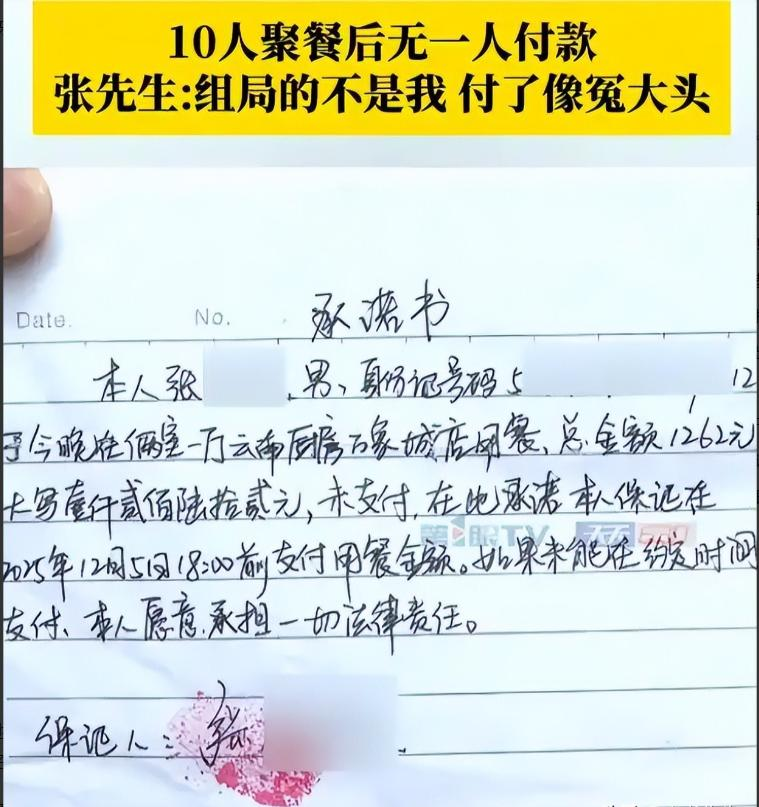 10人聚餐后无一人付款
张先生:组局的不是我 付了像冤大头
Date. No. 承诺书
本人张 男、身份证号码5 12
于今晚在俩室一厅云南厨房万象城店用餐、总金额1262元
大写壹仟贰佰陆拾贰元,未支付,在此承诺本人保证在
第1眼TV
2025年12月5日18:00前支付用餐金额。如果未能在约定时间
支付、本人愿意承担一切法律责任。
保证人:张